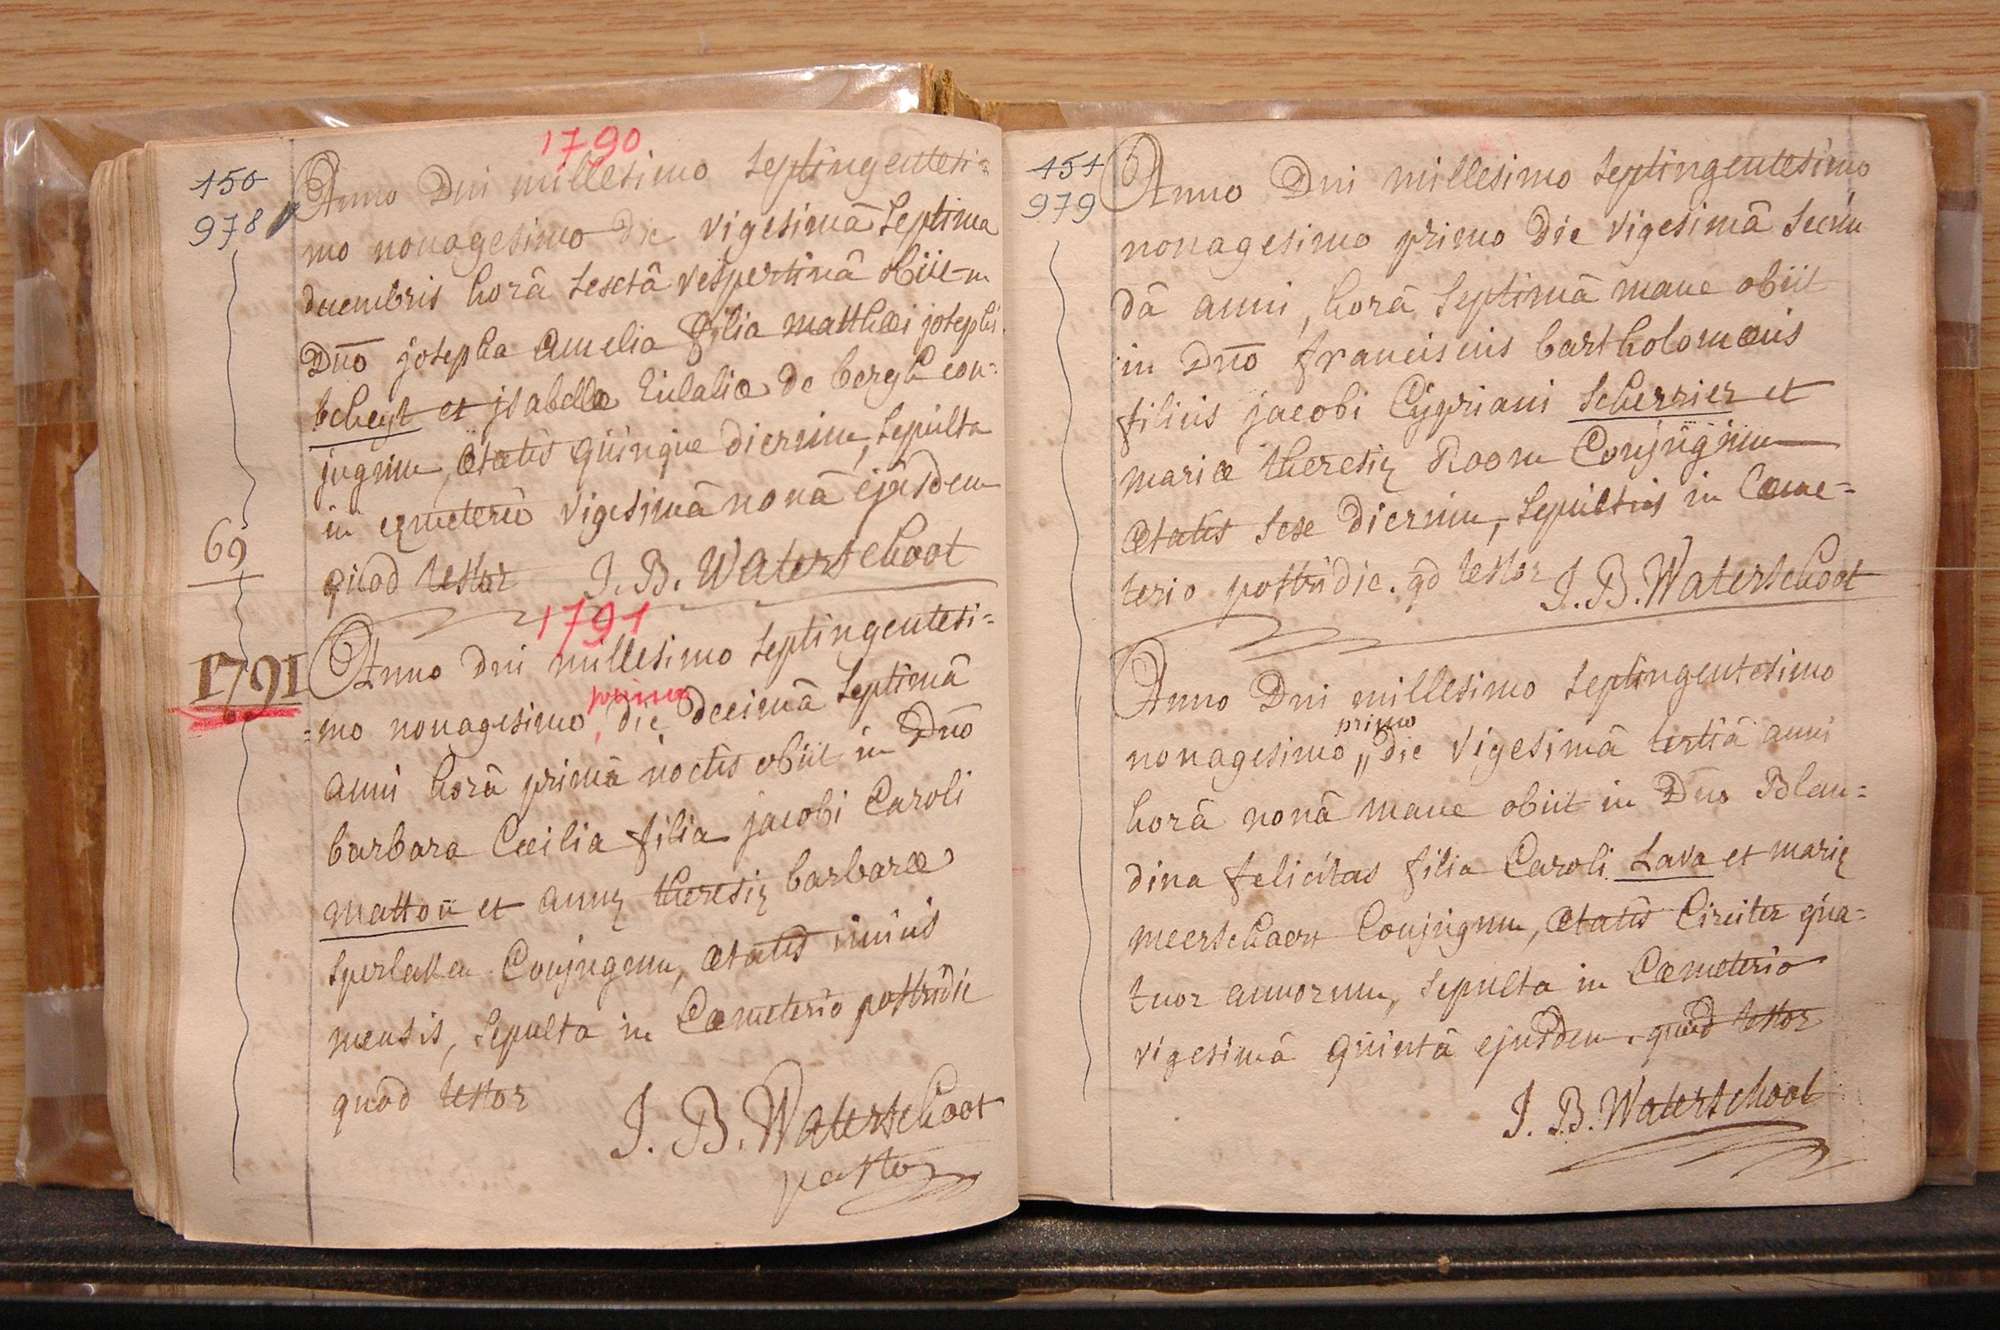 150
978
1790
Anno Dni millesimo septingentesi=
mo nonagesimo die vigesimâ septima
decembris horâ sextâ vespertinâ obiit in
Dno josepha Amelia filia matthæi josephi
beheyt et jsabellæ Eulaliæ de bergh con=
jugum, ætatis quinque dierum, sepulta
in cæmeterio vigesimâ nonâ ejusdem
69
quod testor J. B. Waterschoot
1791
1791
Anno Dni millesimo septingentesi=
primo
=mo nonagesimo, die decimâ septimâ
anni horâ primâ noctis obiit in Dno
barbara Cæcilia filia jacobi Caroli
matton et annę theresię barbaræ
Sperlaken Conjugum, ætatis unius
mensis, sepulta in Cæmeterio postridie
quod testor
J. B. Waterschoot
pastor
151
979
Anno Dni millesimo septingentesimo
nonagesimo primo die vigesimâ secun
dâ anni, horâ septimâ mane obiit
in Dno franciscus bartholomæus
filius jacobi Cypriani Scherrier et
mariæ theresię Room Conjugum
ætatis sex dierum, sepultus in Cæme=
terio postridie. qd testor J. B. Waterschoot
Anno Dni millesimo septingentesimo
primo
nonagesimo,, die vigesimâ tertiâ anni
horâ nonâ mane obiit in Dno Blan=
dina felicitas filia Caroli Lava et marię
meerschaert Conjugum, ætatis Circiter qua=
tuor annorum, sepulta in Cæmeterio
vigesimâ quintâ ejusdem. quod testor
J. B. Waterschoot